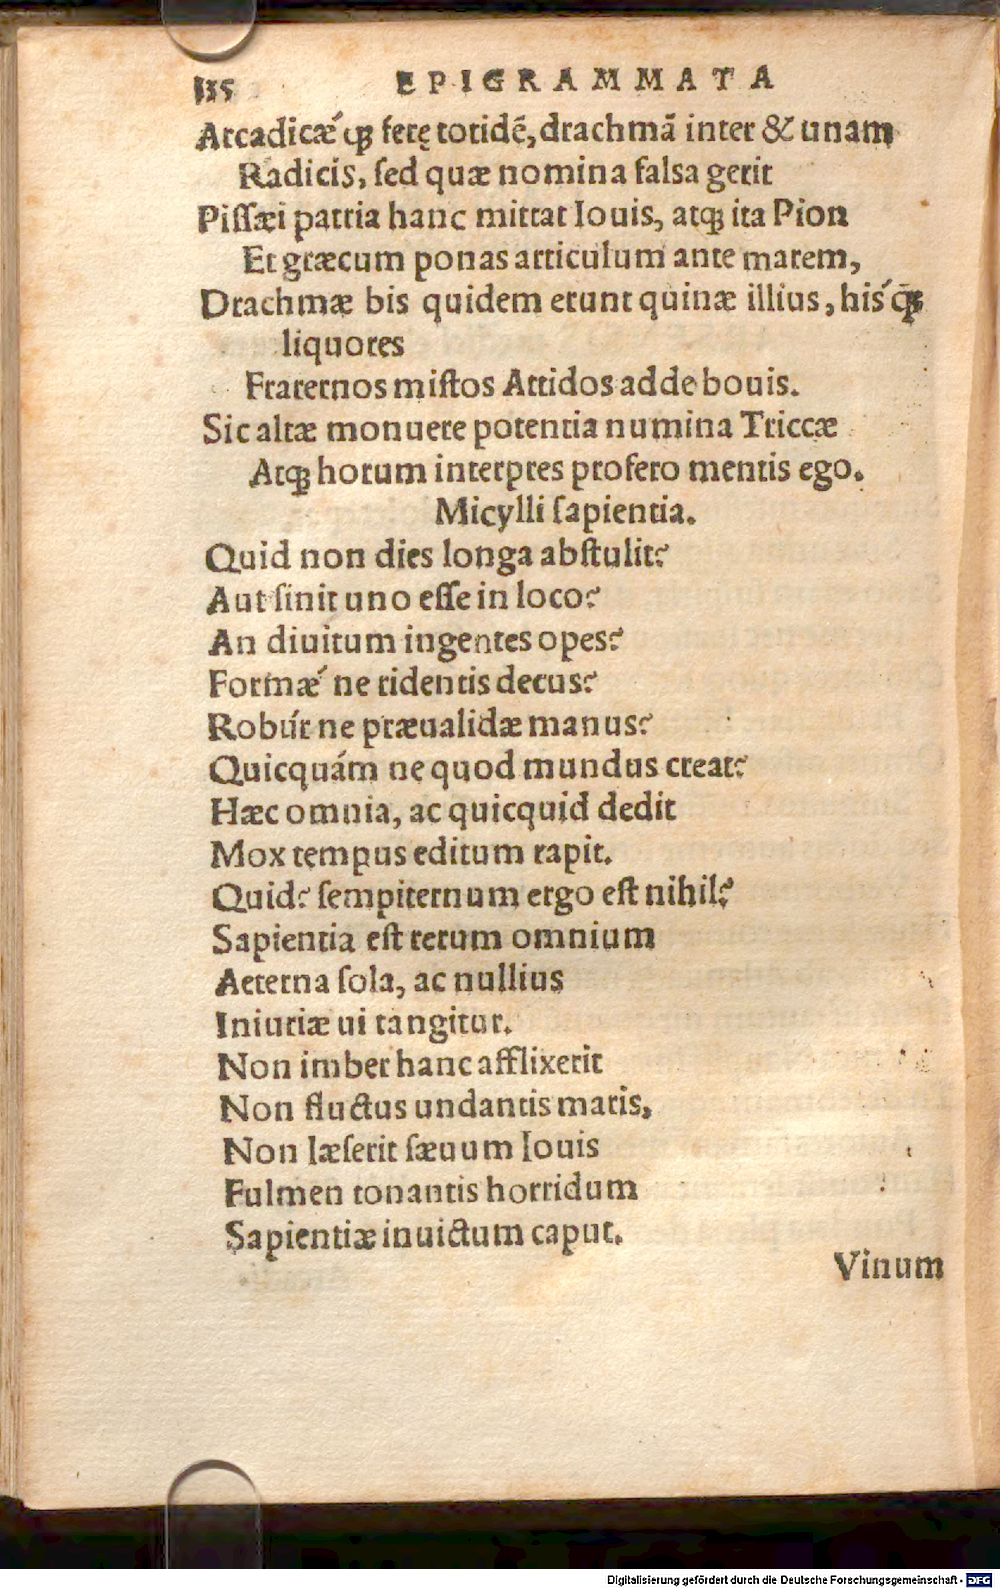 115 EPIGRAMMATA
Arcadicǽ ꝙ ferę totidẽ, drachmã inter & unam
Radicis, sed quæ nomina falsa gerit
Pissæi patria hanc mittat Iouis, atꝙ ita Pion
Et græcum ponas articulum ante marem,
Drachmæ bis quidem erunt quinæ illius, hiśꝙ
liquores
Fraternos mistos Attidos adde bouis.
Sic altæ monuere potentia numina Triccæ
Atꝙ horum interpres profero mentis ego.
Micylli sapientia.
Quid non dies longa abstulit?
Aut sinit uno esse in loco?
An diuitum ingentes opes?
Formǽ ne ridentis decus?
Robúr ne præualidæ manus?
Quicquám ne quod mundus creat?
Hæc omnia, ac quicquid dedit
Mox tempus editum rapit.
Quid? sempiternum ergo est nihil?
Sapientia est rerum omnium
Aeterna sola, ac nullius
Iniuriæ ui tangitur.
Non imber hanc afflixerit
Non fluctus undantis maris,
Non læserit sæuum Iouis
Fulmen tonantis horridum
Sapientiæ inuictum caput.
Vinum
Digitalisierung gefördert durch die Deutsche Forschungsgemeinschaft - DFG